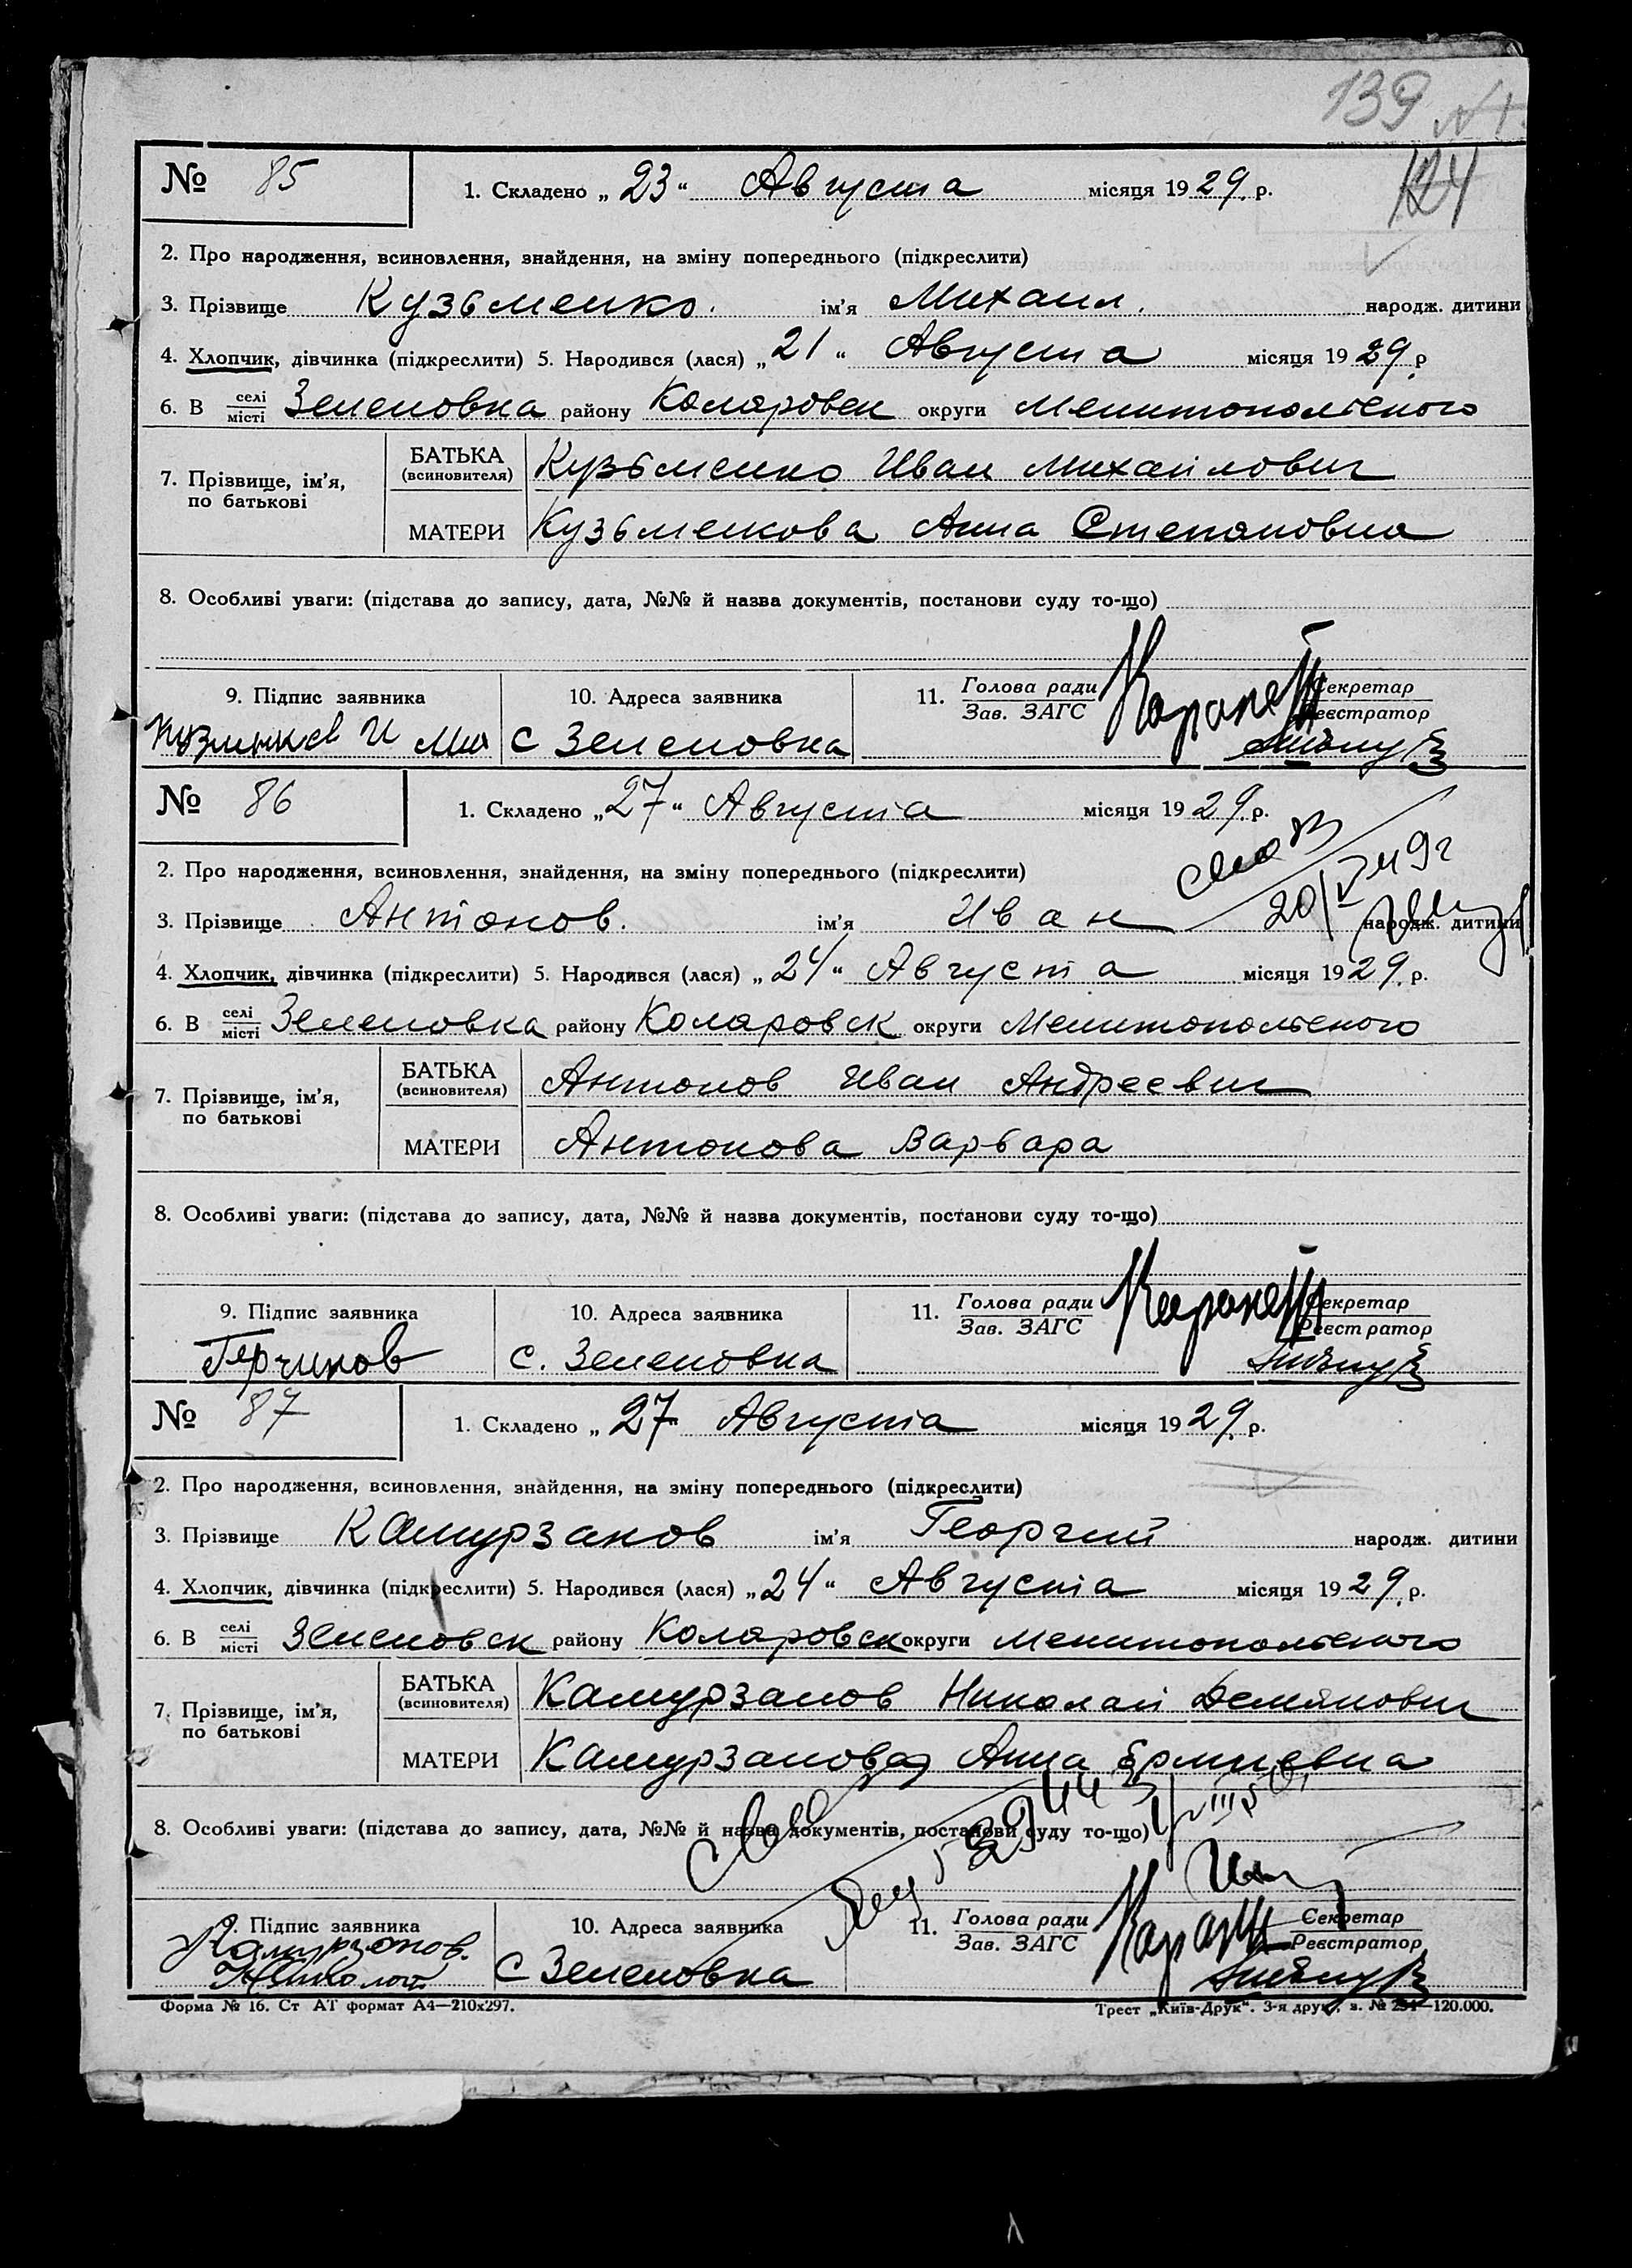 139
124
№ 85 1. Складено „23“ Августа місяця 1929 р.
2. Про народження, всиновлення, знайдення, на зміну попереднього (підкреслити)
3. Прізвище Кузьменко. ім'я Михаил. народж. дитини
4. Хлопчик, дівчинка (підкреслити) 5. Народився (лася) „21“ Августа місяця 1929 р
6. В селі/місті Зеленовка району Коляровск округи Мелитопольского
7. Прізвище, ім'я, по батькові
БАТЬКА (всиновителя) Кузьменко Иван Михайлович
МАТЕРИ Кузьменкова Анна Степановна
8. Особливі уваги: (підстава до запису, дата, №№ й назва документів, постанови суду то-що)
9. Підпис заявника 10. Адреса заявника 11. Голова ради/Зав. ЗАГС Секретар/Реєстратор
с Зеленовка
№ 86 1. Складено „27“ Августа місяця 1929 р.
2. Про народження, всиновлення, знайдення, на зміну попереднього (підкреслити)
3. Прізвище Антонов. ім'я Иван народж. дитини
4. Хлопчик, дівчинка (підкреслити) 5. Народився (лася) „24“ Августа місяця 1929 р.
6. В селі/місті Зеленовка району Коляровск округи Мелитопольского
7. Прізвище, ім'я, по батькові
БАТЬКА (всиновителя) Антонов Иван Андреевич
МАТЕРИ Антонова Варвара
8. Особливі уваги: (підстава до запису, дата, №№ й назва документів, постанови суду то-що)
9. Підпис заявника 10. Адреса заявника 11. Голова ради/Зав. ЗАГС Секретар/Реєстратор
с. Зеленовка
№ 87 1. Складено „27“ Августа місяця 1929 р.
2. Про народження, всиновлення, знайдення, на зміну попереднього (підкреслити)
3. Прізвище Камурзаков ім'я Георгий народж. дитини
4. Хлопчик, дівчинка (підкреслити) 5. Народився (лася) „24“ Августа місяця 1929 р.
6. В селі/місті Зеленовск району Коляровск округи Мелитопольского
7. Прізвище, ім'я, по батькові
БАТЬКА (всиновителя) Камурзаков Николай Демянович
МАТЕРИ Камурзакова Анна
8. Особливі уваги: (підстава до запису, дата, №№ й назва документів, постанови суду то-що)
9. Підпис заявника 10. Адреса заявника 11. Голова ради/Зав. ЗАГС Секретар/Реєстратор
с Зеленовка
Форма № 16. Ст АТ формат А4—210х297. Трест „Київ-Друк“. 3-я друк., з. № —120.000.